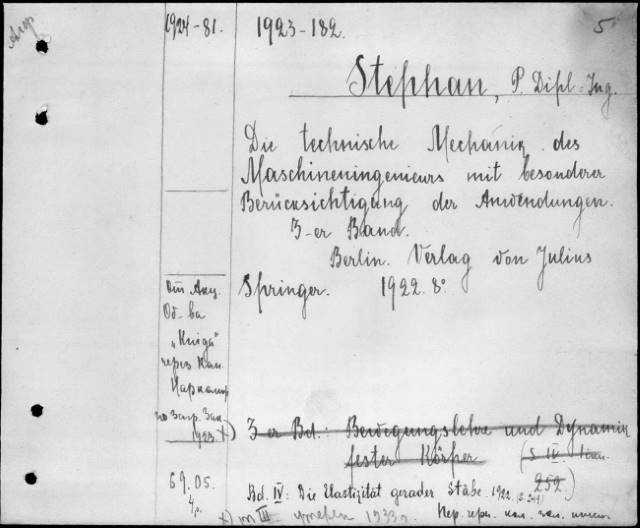 1924-81. 1923-182. 5
Stephan, P. Dipl-Ing.
Die technische Mechanik des
Maschineningenieurs mit besonderer
Berücksichtigung der Anwendungen.
3-er Band.
Berlin. Verlag von Julius
Springer. 1922. 8°
От Акц.
Об-ва
„Книга"
через
Наркомпр
1923. x)
3-er Bd.: Bewegungslehre und Dynamik
fester Körper (S IV.
252.)
69.05.
Bd. IV: Die Elastizität gerader Stäbe. 1922.
x) т III 1933 г.